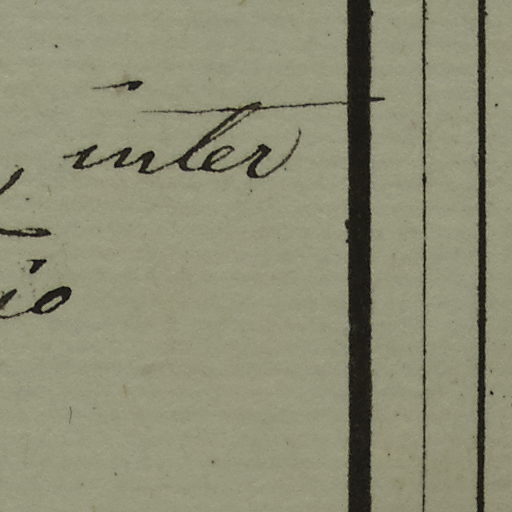 inter
io